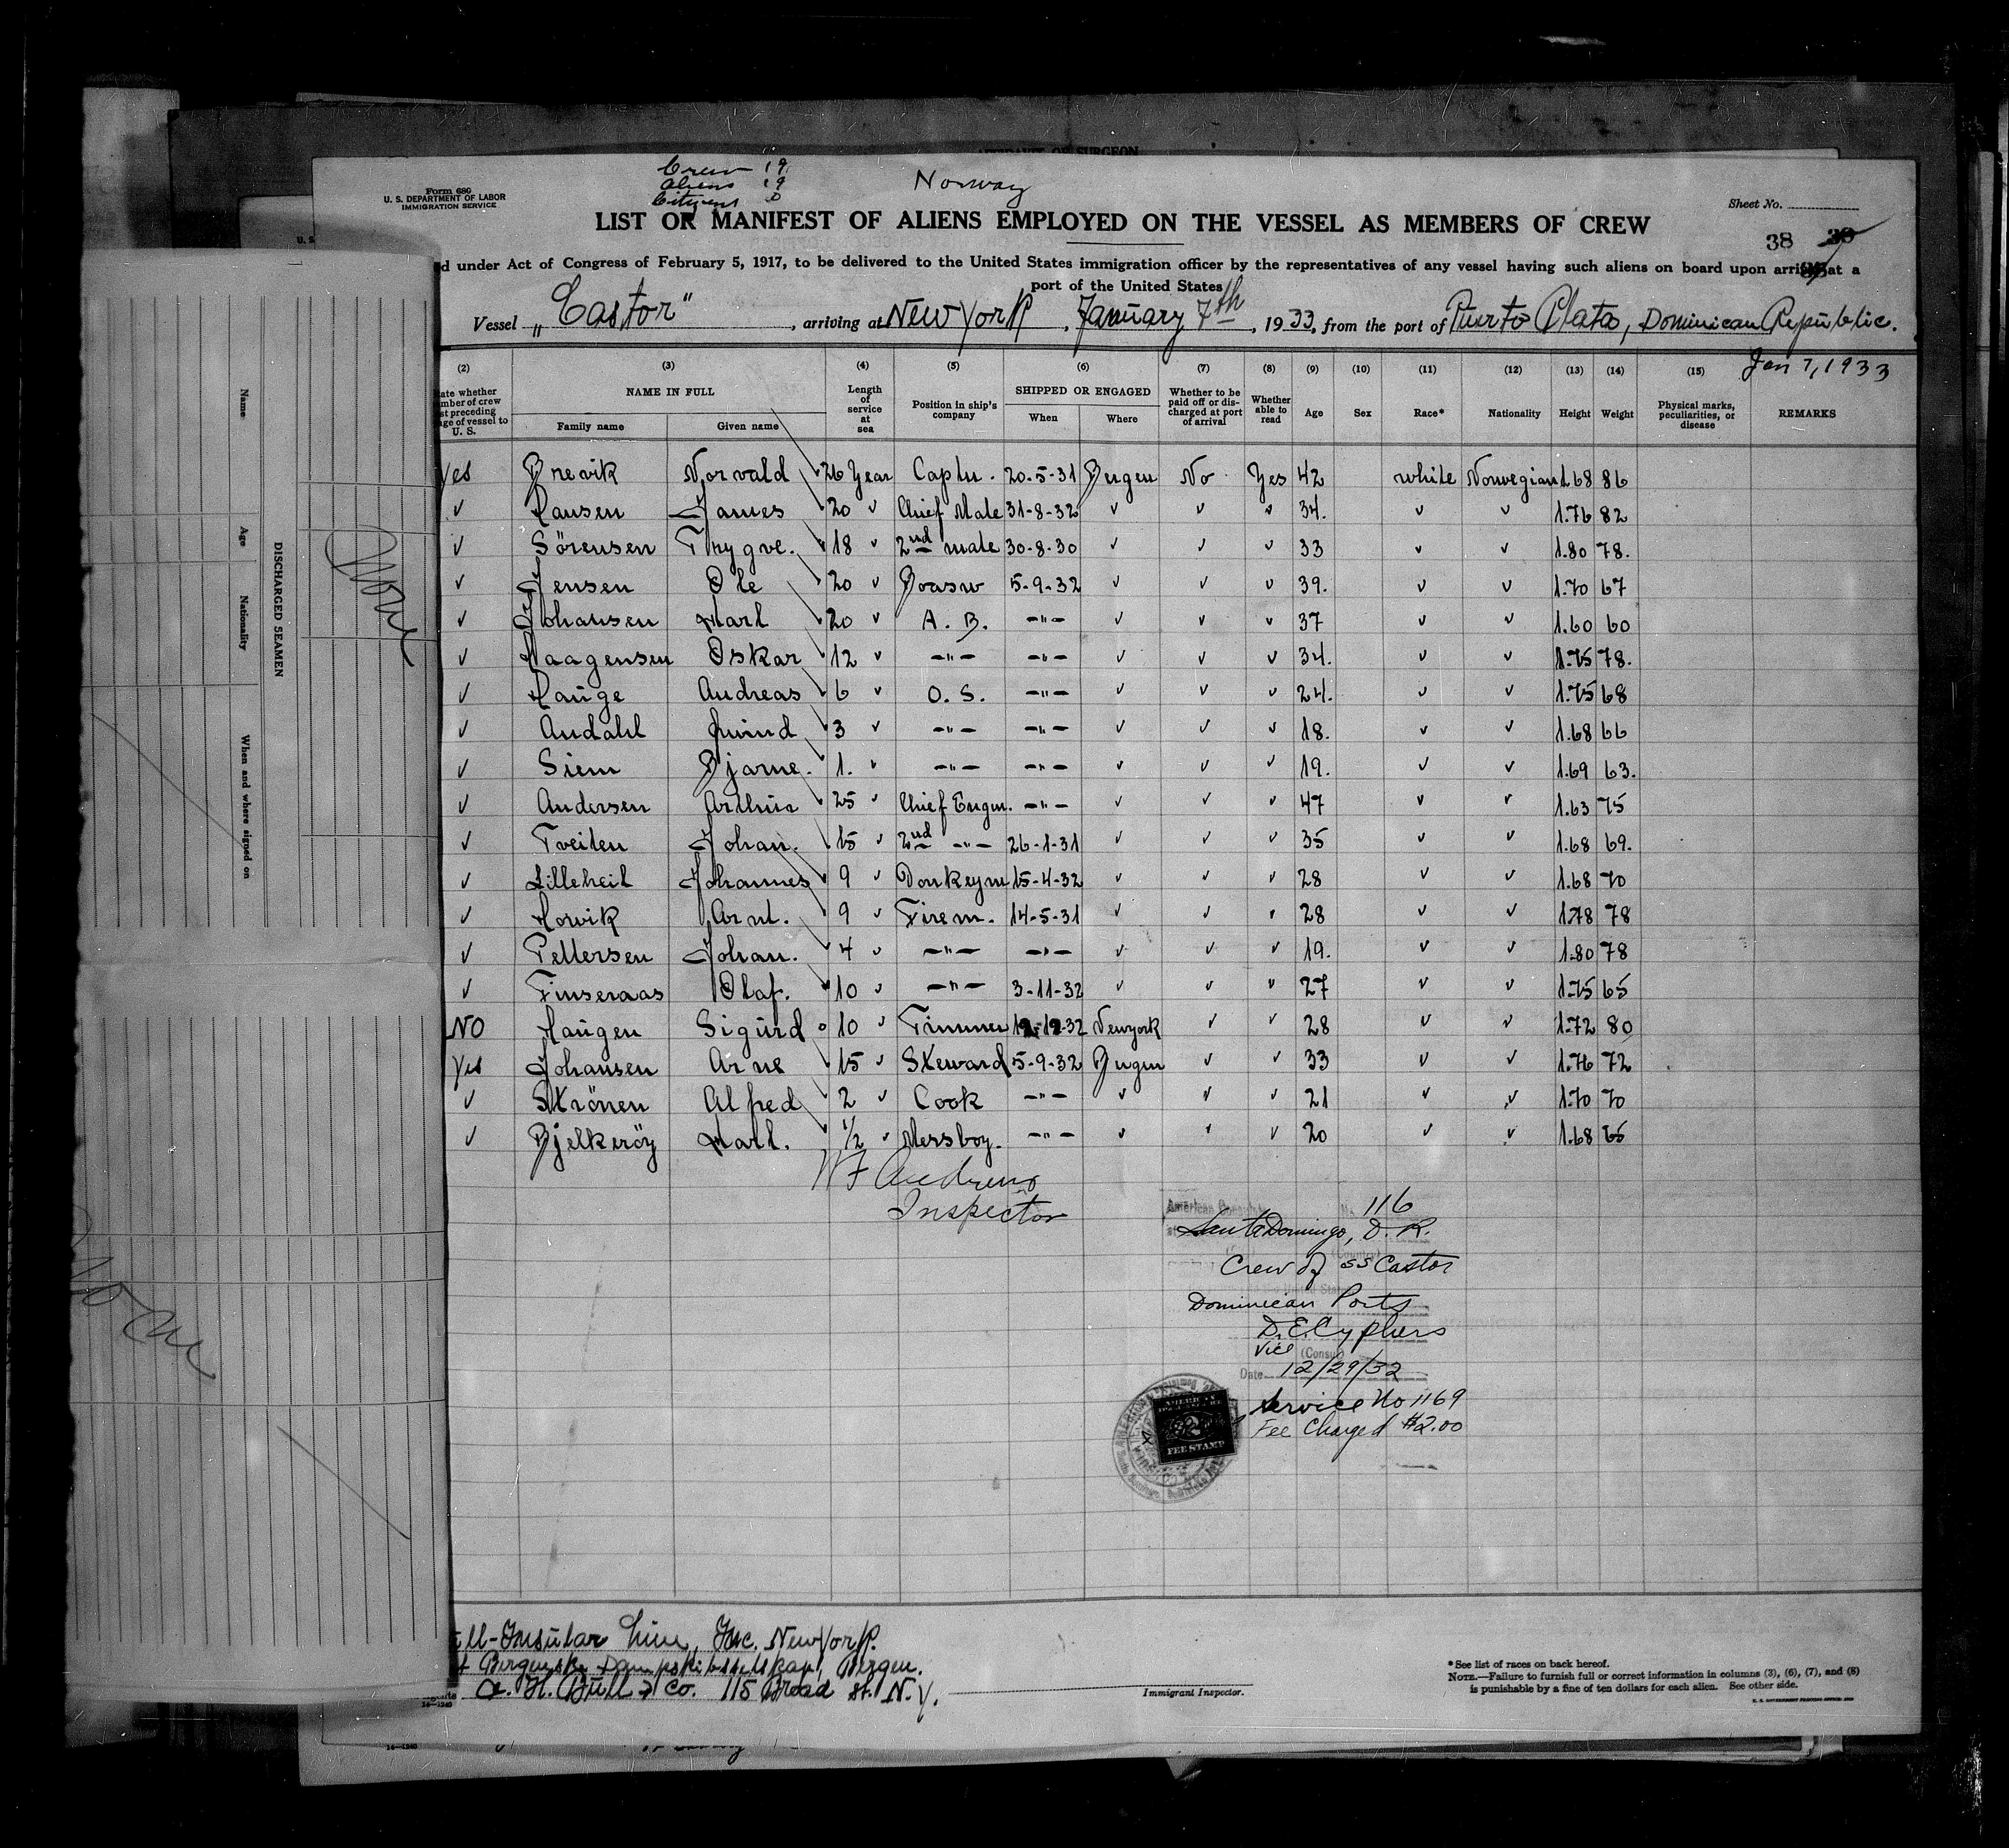 Form 680
U. S. DEPARTMENT OF LABOR
IMMIGRATION SERVICE
Crew 19
Aliens 19
Citizens 0
Norway
Sheet No.
LIST OR MANIFEST OF ALIENS EMPLOYED ON THE VESSEL AS MEMBERS OF CREW
38
d under Act of Congress of February 5, 1917, to be delivered to the United States immigration officer by the representatives of any vessel having such aliens on board upon arrival at a
port of the United States
Vessel „Castor", arriving at New York, January 7th, 1933, from the port of Puerto Plata, Dominican Republic.
Jan 7, 1933
(2) (3) (4) (5) (6) (7) (8) (9) (10) (11) (12) (13) (14) (15)
NAME IN FULL Family name Given name Length of service at sea Position in ship's company SHIPPED OR ENGAGED When Where Whether to be paid off or discharged at port of arrival Whether able to read Age Sex Race* Nationality Height Weight Physical marks, peculiarities, or disease REMARKS
Yes Brevik Norvald 26 Year Captn. 20-5-31 Bergen No Yes 42 white Norwegian 1.68 86
✓ Hansen James 20 ✓ Chief Mate 31-8-32 ✓ ✓ ✓ 34. ✓ ✓ 1.76 82
✓ Sörensen Trygve. 18 ✓ 2nd mate 30-8-30 ✓ ✓ ✓ 33 ✓ ✓ 1.80 78.
✓ Jensen Ole 20 ✓ Boasw 5-9-32 ✓ ✓ ✓ 39. ✓ ✓ 1.70 67
✓ Johansen Karl 20 ✓ A. B. -"- ✓ ✓ ✓ 37 ✓ ✓ 1.60 60
✓ Haagensen Oskar 12 ✓ -"- -"- ✓ ✓ ✓ 34. ✓ ✓ 1.75 78.
✓ Hauge Andreas 6 ✓ O. S. -"- ✓ ✓ ✓ 24. ✓ ✓ 1.75 68
✓ Andahl 3 ✓ -"- -"- ✓ ✓ ✓ 18. ✓ ✓ 1.68 66
✓ Siem Bjarne. 1. " -"- -"- ✓ ✓ ✓ 19. ✓ ✓ 1.69 63.
✓ Andersen Arthur 25 ✓ Chief Engin. -"- ✓ ✓ ✓ 47 ✓ ✓ 1.63 75
✓ Tveiten Johan. 15 ✓ 2nd -"- 26-1-31 ✓ ✓ ✓ 35 ✓ ✓ 1.68 69.
✓ Lilleheil Johannes 9 ✓ Donkeym 15-4-32 ✓ ✓ ✓ 28 ✓ ✓ 1.68 70
✓ Hovik Arnt. 9 ✓ Firem. 14-5-31 ✓ ✓ ✓ 28 ✓ ✓ 1.78 78
✓ Pettersen Johan. 4 ✓ -"- -"- ✓ ✓ ✓ 19. ✓ ✓ 1.80 78
✓ Finseraas Olaf. 10 ✓ -"- 3-11-32 ✓ ✓ ✓ 27 ✓ ✓ 1.75 65
NO Haugen Sigurd 10 ✓ Trimmer 12-32 Newyork ✓ ✓ 28 ✓ ✓ 1.72 80
Yes Johansen Arne 15 ✓ Steward 5-9-32 Bergen ✓ ✓ 33 ✓ ✓ 1.76 72
✓ Strönen Alfred 2 ✓ Cook -"- ✓ ✓ ✓ 21 ✓ ✓ 1.70 70
✓ Bjelkeröy Karl. 1/2 ✓ Messboy. -"- ✓ ✓ ✓ 20 ✓ ✓ 1.68 65
W F Andrews
Inspector
No. 116
Santo Domingo, D. R.
Crew of SS Castor
Dominican Ports
D. E. Cyphers
Vice (Consul)
Date 12/29/32
Service No 1169
Fee Charged $2.00
FEE STAMP
ll-Insular Line, Inc. New York.
Bergenske Dampskibsselskap, Bergen.
A. H. Bull & Co. 115 Broad St. N.Y.
Immigrant Inspector.
*See list of races on back hereof.
NOTE.—Failure to furnish full or correct information in columns (3), (6), (7), and (8)
is punishable by a fine of ten dollars for each alien. See other side.
DISCHARGED SEAMEN
Name
Age
Nationality
When and where signed on
None
None